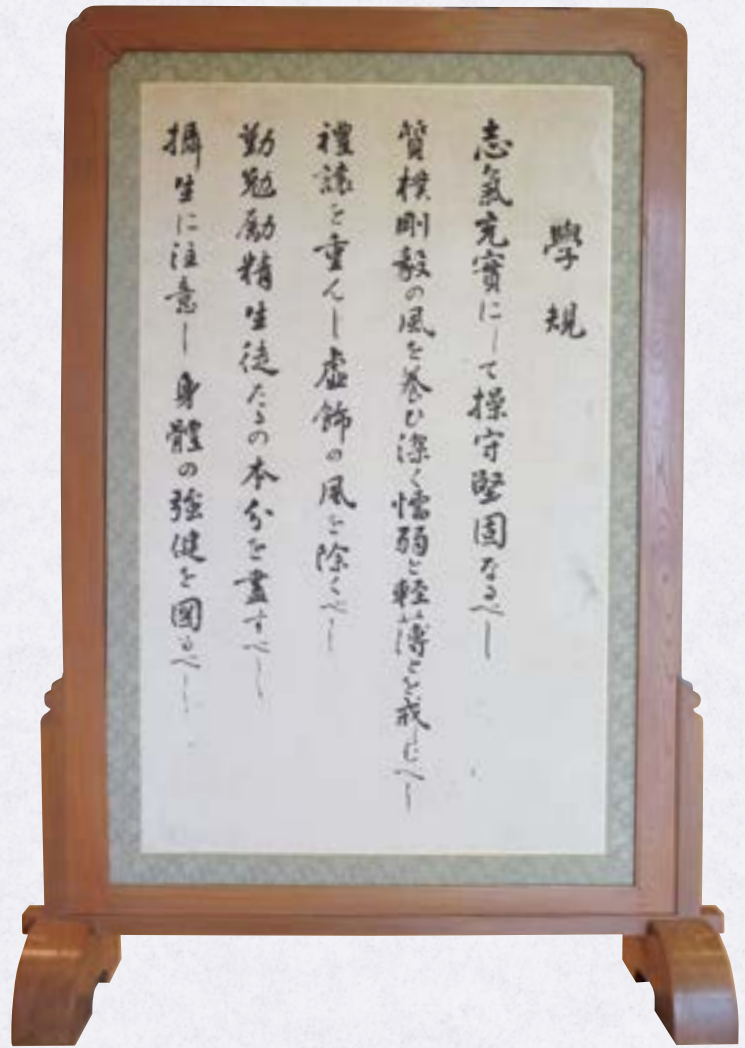 學規
志氣充實にして操守堅固なるべし
質樸剛毅の風を養ひ深く懦弱と軽薄とを戒しむべし
禮譲を重んし虚飾の風を除くべし
勤勉励精生徒たるの本分を盡すべし
攝生に注意し身體の強健を圖るべし